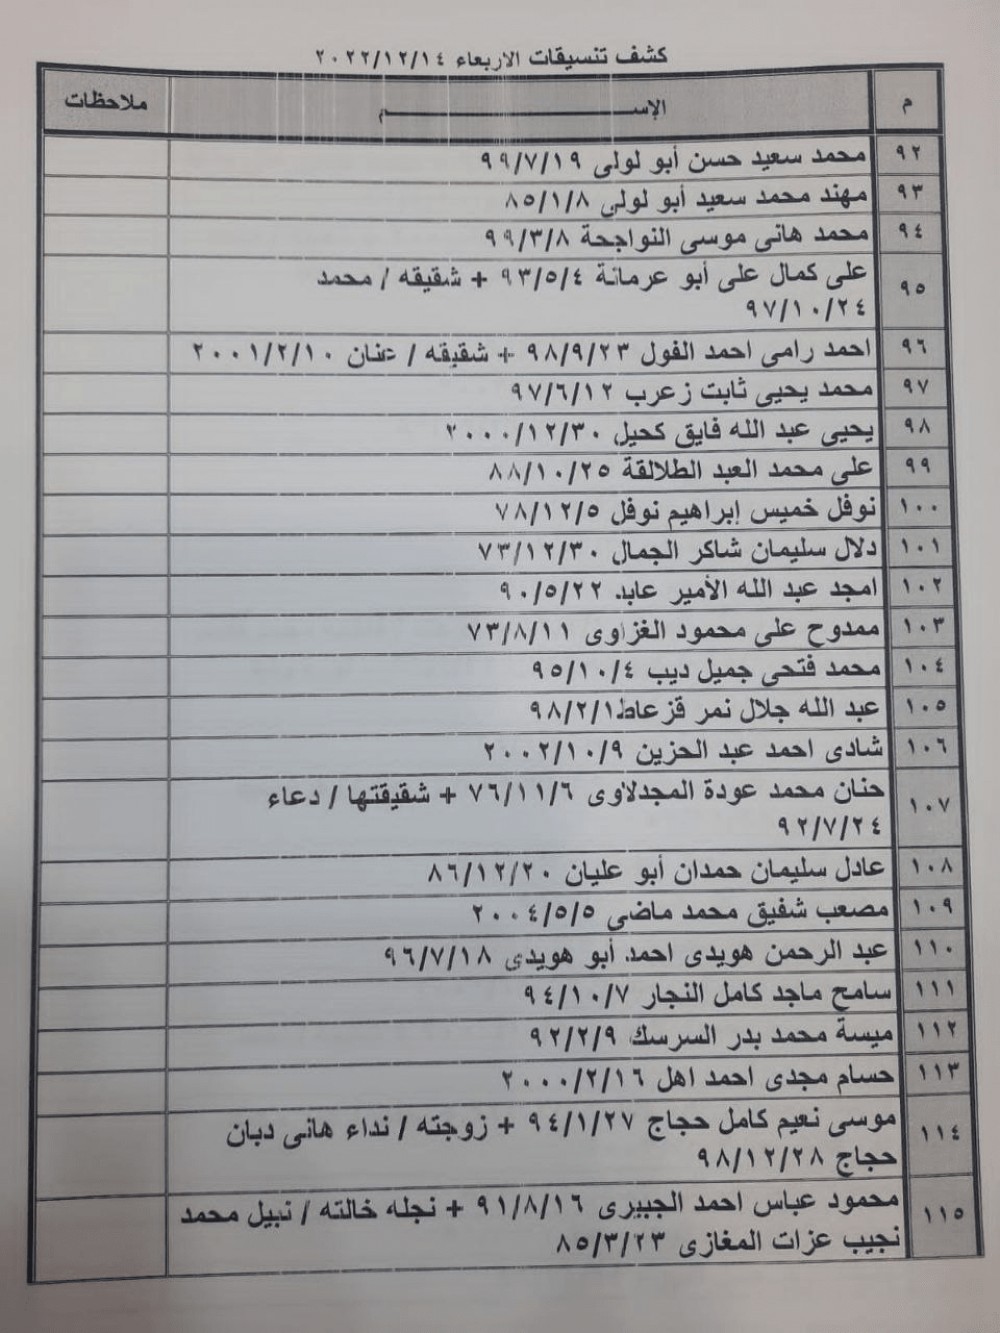 كشف تنسيقات الاربعاء ٢٠٢٢/١٢/١٤
م الإســــــــم ملاحظات
٩٢ محمد سعيد حسن أبو لولى ٩٩/٧/١٩
٩٣ مهند محمد سعيد أبو لولى ٨٥/١/٨
٩٤ محمد هانى موسى النواجحة ٩٩/٣/٨
٩٥ على كمال على أبو عرمانة ٩٣/٥/٤ + شقيقه / محمد
٩٧/١٠/٢٤
٩٦ احمد رامى احمد الفول ٩٨/٩/٢٣ + شقيقه / عنان ٢٠٠١/٢/١٠
٩٧ محمد يحيى ثابت زعرب ٩٧/٦/١٢
٩٨ يحيى عبد الله فايق كحيل ٢٠٠٠/١٢/٣٠
٩٩ على محمد العبد الطلالقة ٨٨/١٠/٢٥
١٠٠ نوفل خميس إبراهيم نوفل ٧٨/١٢/٥
١٠١ دلال سليمان شاكر الجمال ٧٣/١٢/٣٠
١٠٢ امجد عبد الله الأمير عابد ٩٠/٥/٢٢
١٠٣ ممدوح على محمود الغزاوى ٧٣/٨/١١
١٠٤ محمد فتحى جميل ديب ٩٥/١٠/٤
١٠٥ عبد الله جلال نمر قزعاط ٩٨/٢/١
١٠٦ شادى احمد عبد الحزين ٢٠٠٢/١٠/٩
١٠٧ حنان محمد عودة المجدلاوى ٧٦/١١/٦ + شقيقتها / دعاء
٩٢/٧/٢٤
١٠٨ عادل سليمان حمدان أبو عليان ٨٦/١٢/٢٠
١٠٩ مصعب شفيق محمد ماضى ٢٠٠٤/٥/٥
١١٠ عبد الرحمن هويدى احمد أبو هويدى ٩٦/٧/١٨
١١١ سامح ماجد كامل النجار ٩٤/١٠/٧
١١٢ ميسة محمد بدر السرسك ٩٢/٢/٩
١١٣ حسام مجدى احمد اهل ٢٠٠٠/٢/١٦
١١٤ موسى نعيم كامل حجاج ٩٤/١/٢٧ + زوجته / نداء هانى دبان
حجاج ٩٨/١٢/٢٨
١١٥ محمود عباس احمد الجبيرى ٩١/٨/١٦ + نجله خالته / نبيل محمد
نجيب عزات المغازى ٨٥/٣/٢٣